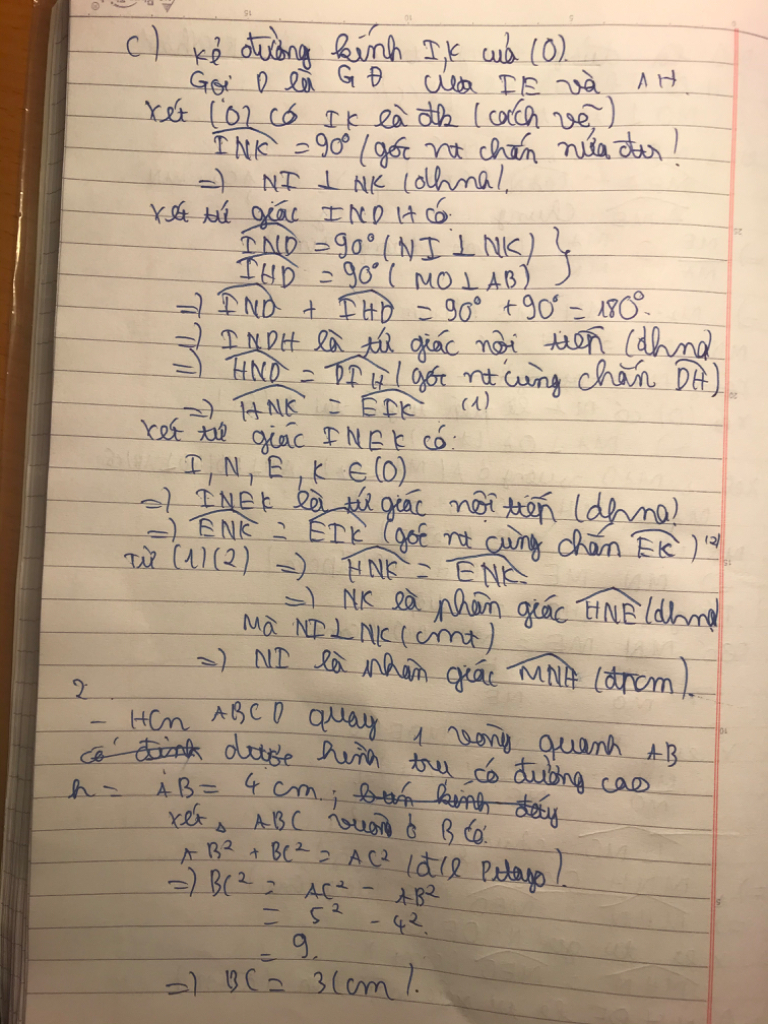 c) Kẻ đường kính IK của (O).
Gọi D là GĐ của IE và AH.
Xét (O) có IK là đk (cách vẽ)
INK = 90° (góc nt chắn nửa đtr)
=> NI ⊥ NK (dhnd).
Xét tứ giác INDH có
IND = 90° (NI ⊥ NK) }
IHD = 90° (MO ⊥ AB) }
=> IND + IHD = 90° + 90° = 180°.
=> INDH là tứ giác nội tiếp (dhnd)
=> HND = DIH (góc nt cùng chắn DH)
=> HNK = EIK (1)
Xét tứ giác INEK có:
I, N, E, K ∈ (O)
=> INEK là tứ giác nội tiếp (dhnd)
=> ENK = EIK (góc nt cùng chắn EK) (2)
Từ (1)(2) => HNK = ENK
=> NK là phân giác HNE (dhnd)
Mà NI ⊥ NK (cmt)
=> NI là phân giác MNH (đpcm).
2
- HCN ABCD quay 1 vòng quanh AB
cố định được hình trụ có đường cao
h = AB = 4 cm; bán kính đáy
Xét △ ABC vuông ở B có
AB² + BC² = AC² (đ/l Pitago).
=> BC² = AC² - AB²
= 5² - 4²
= 9.
=> BC = 3 (cm).